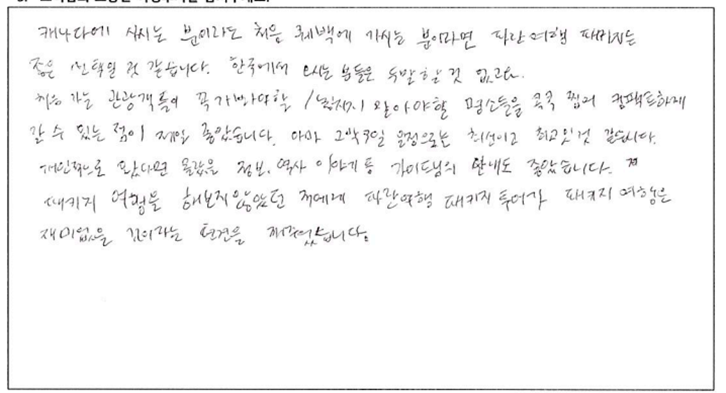 캐나다에 사시는 분이라도 처음 퀘벡에 가시는 분이라면 파란여행 패키지는
좋은 선택일 것 같습니다. 한국에서 오시는 분들은 두말할 것 없고요.
처음 가는 관광객들이 꼭 가봐야할 / 알아야할 명소들을 콕콕 찝어 컴팩트하게
갈 수 있는 점이 제일 좋았습니다. 아마 3일 일정으로는 최선이고 최고일 것 같습니다.
개인적으로 왔다면 몰랐을 정보, 역사 이야기 등 가이드님의 안내도 좋았습니다.
패키지 여행을 해보지않았던 저에게 파란여행 패키지 투어가 패키지 여행은
재미없을 것이라는 편견을 깨주었습니다.